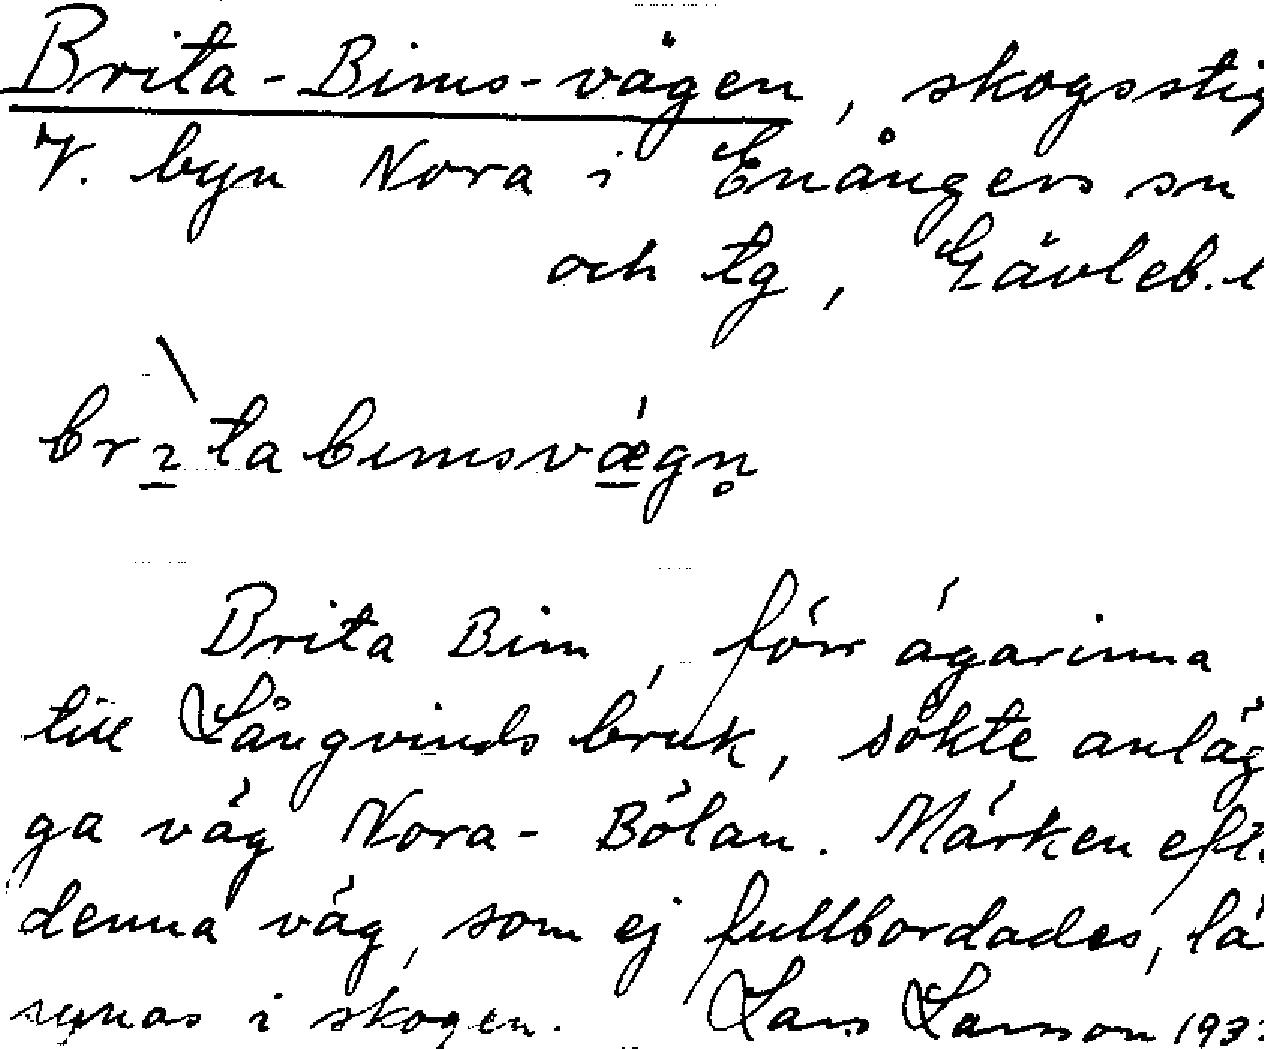 Brita-Bims-vägen, skogsstig
V. byn Nora i Enångers sn
och tg, Gävleb. l
brıtabımsvægn̥
Brita Bim, förr ägarinna
till Långvinds bruk, sökte anläg
ga väg Nora- Bölan. Märken eft.
denna väg, som ej fullbordades, lä
synas i skogen. Lars Larsson 193